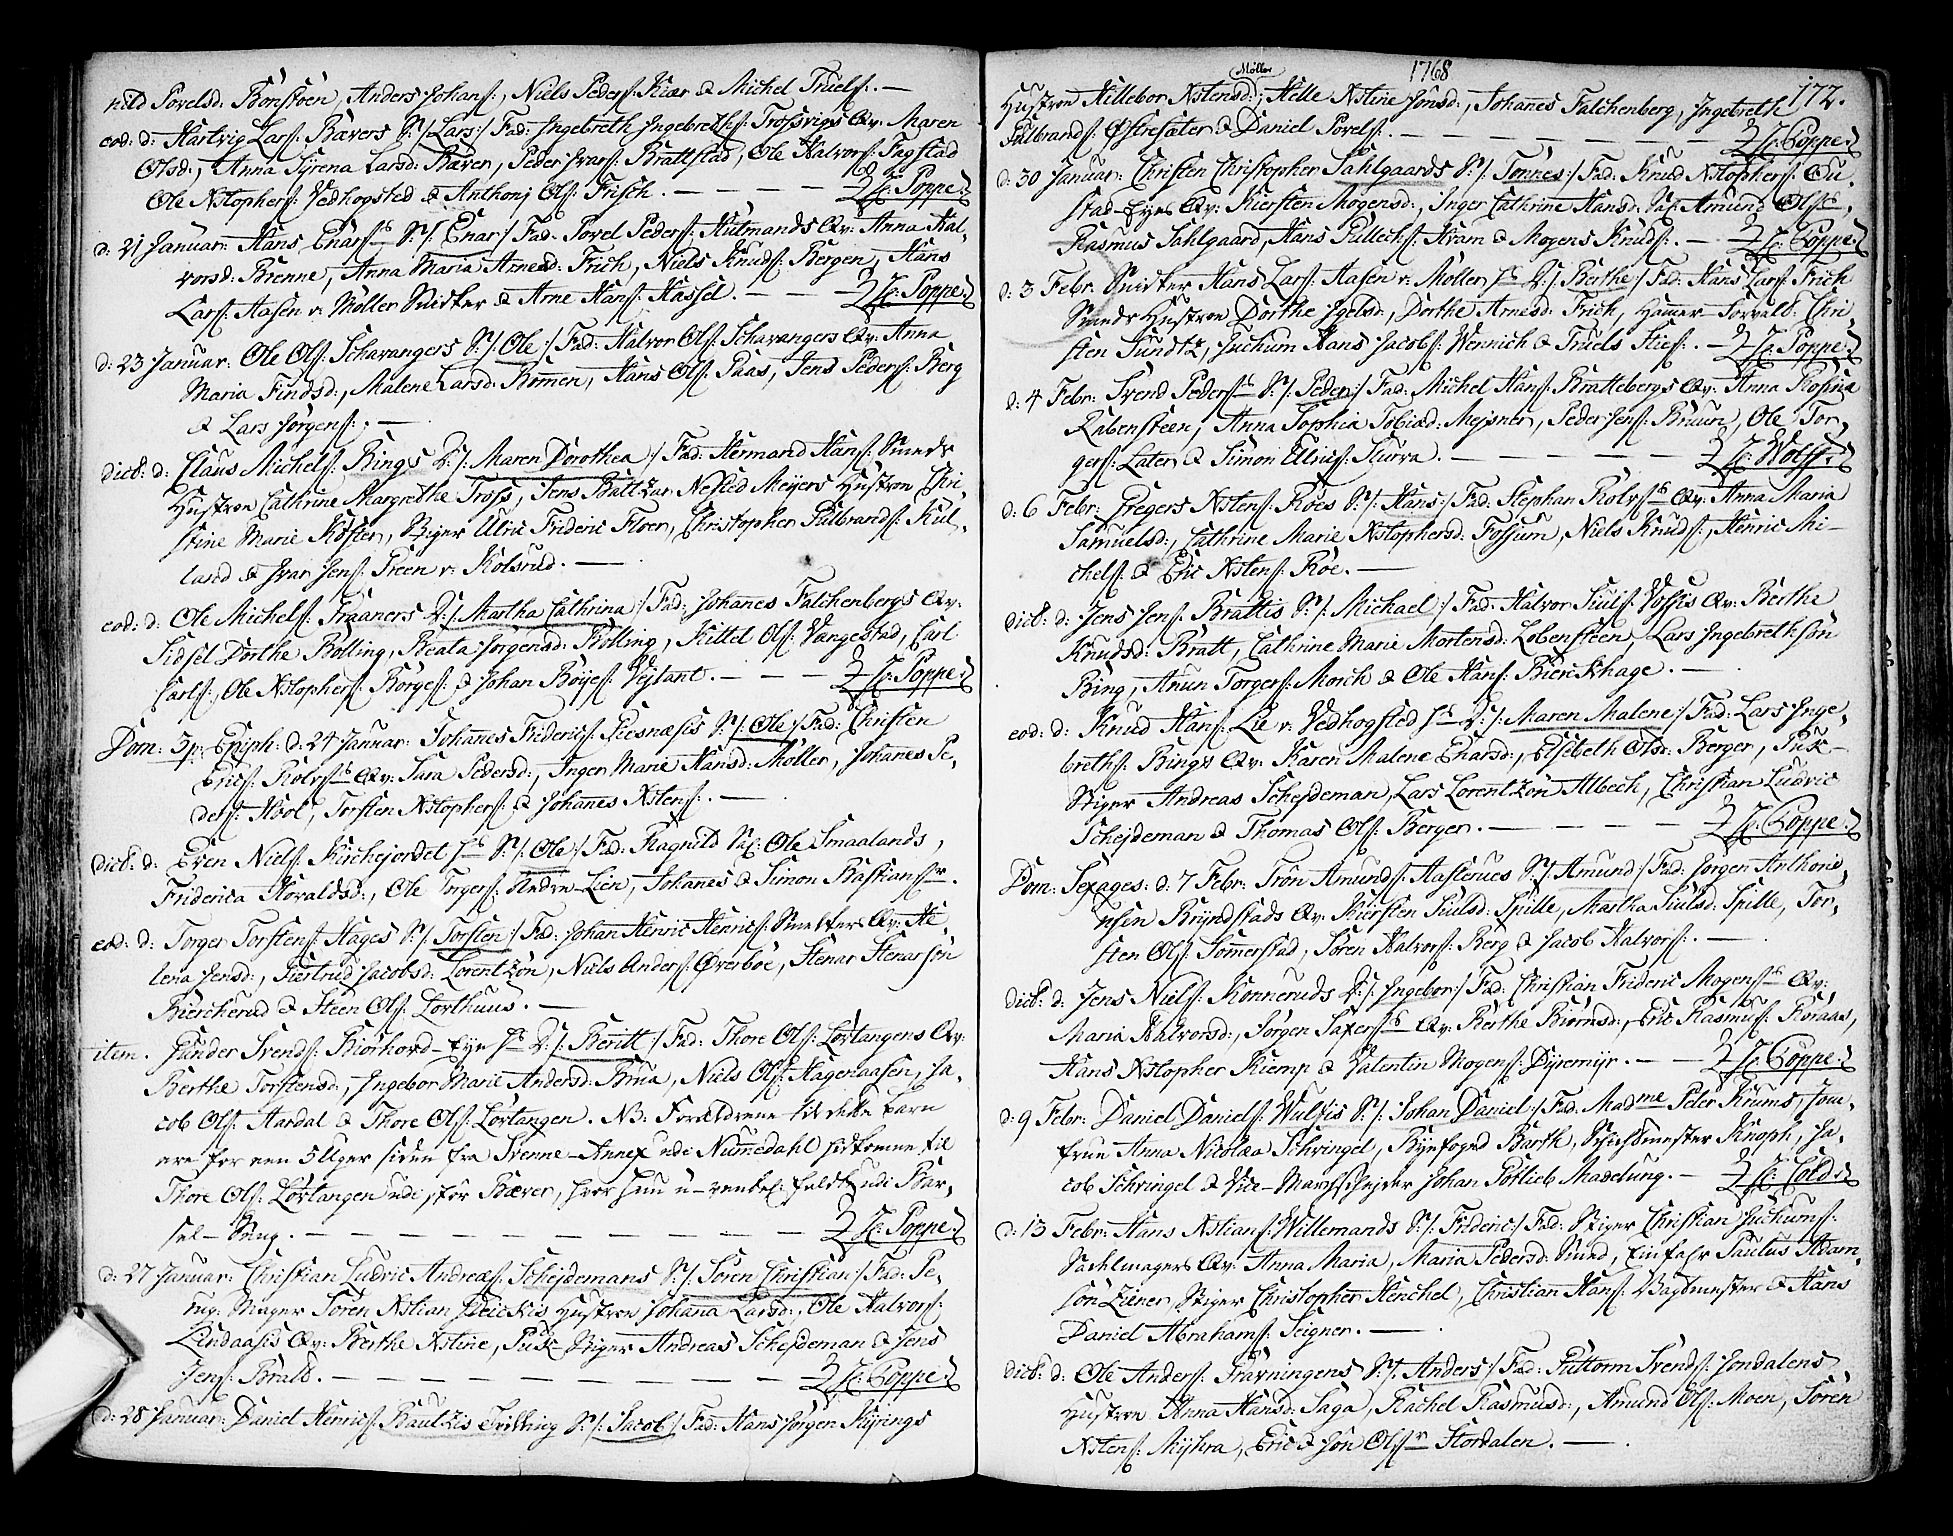 nild Povelsd: Bonstöen, Anders Johans:, Niels Peders: Kiær & Michel Truels:. —
eod: d: Hartvig Lars: Bævers S: /: Lars :/ Fad: Ingebreth Ingebreths: Trossvigs Qv: Maren
Olsd:, Anna Syrena Larsd: Bæver, Peder Ivars: Brattstad, Ole Halvors: Fagstad
Ole Xstophers: Vedhogsted & Anthonj Ols: Frisch. — H: Poppe
d: 21 Januar: Hans Enars: S: /: Enar :/ Fad: Povel Peders: Hutmands Qv: Anna Hal-
vorsd: Brenne, Anna Maria Arnesd: Frich, Niels Knuds: Bergen, Hans
Lars: Aasen v: Möller Snidker & Arne Hans: Hassel. — H: Poppe
d: 23 Januar: Ole Ols: Schavangers S: /: Ole :/ Fad: Halvor Ols: Schavangers Qv: Anna
Maria Findsd:, Malene Larsd: Rømen, Hans Ols: Paas, Jens Peders: Berg
& Lars Jörgens:. —
dict: d: Claus Michels: Rings D: /: Maren Dorothea :/ Fad: Hermand Hans: Smeds
Hustroe Cathrine Margrethe Tross, Jens Baltzar Nested Meijers Hustroe Chri-
stine Marie Köster, Stiger Ulric Frideric Floer, Christopher Gulbrands: Kul-
land & Ivar Jens: Green v: Kolsrud. —
eod: d: Ole Michels: Fraaners D: /: Martha Cathrina :/ Fad: Johanes Falchenbergs Qv:
Sidsel Dorthe Rolling, Beata Jörgensd: Rolling, Kittel Ols: Vangestad, Carl
Carls:, Ole Xstophers: Börges: & Johan Böijes: Vejlant. — H: Poppe
Dom: 3 p: Epiph: d: 24 Januar: Johanes Friderics: Giesnæsis S: /: Ole :/ Fad: Christen
Erics: Rolvs: Qv: Sara Pedersd:, Inger Marie Hansd: Möller, Johanes Pe-
ders: Hvol, Torsten Xstophers: & Johanes Xstens:. —
dict: d: Even Niels: Kirchejordet S: /: Ole :/ Fad: Ragnild Sal: Ole Smaalands,
Friderica Horaldsd:, Ole Torgers: Andre-Lien, Johanes & Simon Bastians:.
eod: d: Torger Torstens: Hages S: /: Torsten :/ Fad: Johan Henric Henrics: Smelters Qv: He-
lena Jensd:, Giertrud Jacobsd: Lorentzön, Niels Anders: Øverböe, Stenar Stenarsön
Bierkerud & Steen Ols: Lofthuus. —
item. Gunder Svends: Biörhovd-Eye D: /: Beritt :/ Fad: Thore Ols: Lövlangens Qv:
Berthe Torstensd:, Ingebor Marie Andersd: Brua, Niels Ols: Hagenaasen, Ja-
cob Ols: Aardal & Thore Ols: Lövlangen. NB: Forældrene til dette barn
ere for een 5 Uger siden fra Svenne-Annex udi Numedahl hidkomne til
Thore Ols: Lövlangen udi, for Bæver, hvor hun faldt udi Bar-
sel-Seng. — H: Poppe
d: 27 Januar: Christian Ludvic Andreæs: Schejdemans S: /: Sören Christian :/ Fad: Pe-
rug-Mager Sören Xstian Hustroe Johana Larsd:, Ole Halvors:
Lindaasis Qv: Berthe Xstine, Puk-Stiger Andreas Schejdeman & Jens
Jens: Brald. — H: Poppe
d: 28 Januar: Daniel Henrics: Baultzis Tvilling S: /: Jacob :/ Fad: Hans Jörgen Kijrings
1768
172.
Hustroe Hillebor Xstensd: Möller, Helle Xstine Jonsd:, Johanes Falchenberg, Ingebreth
Gulbrands: Østresæter & Daniel Povels:. — H: Poppe
d: 30 Januar: Christen Christopher Sahlgaards S: /: Tönnes :/ Fad: Knud Xstophers: Ou-
stad-Eyes Qv: Kiersten Mogensd:, Inger Cathrine Hansd: Sal: Amund Ols:,
Rasmus Sahlgaard, Hans Pullechs: Kram & Mogens Knuds:. — H: Poppe
d: 3 Febr: Snidker Hans Lars: Aasen v: Möller D: /: Berthe :/ Fad: Hans Lars: Frich
Smeds Hustroe Dorthe Igelsd:, Dorthe Arnesd: Frich, Hamer-Forvald: Chri-
sten Fundtz, Juchum Hans Jacobs: Wennich & Truels Ties:. — H: Poppe
d: 4 Febr: Svend Peders: S: /: Peder :/ Fad: Michel Hans: Brattebergs Qv: Anna Rosina
Rabensteen, Anna Sophia Tobiæd: Mejsner, Peder Jens: Bruun, Ole Tor-
gers: Later & Simon Ulrics: Skurra. — H: Wolff
d: 6 Febr: Gregers Xstens: Roes S: /: Hans :/ Fad: Stephan Rolvs: Qv: Anna Maria
Samuelsd:, Cathrine Marie Xstophersd: Fossum, Niels Knuds:, Henric Mi-
chels: & Eric Xstens: Roe. —
dict: d: Jens Jens: Brattis S: /: Michael :/ Fad: Halvor Siuls: Vossis Qv: Berthe
Knudsd: Bratt, Cathrine Marie Mortensd: Lobensteen, Lars Ingebrethsön
Bing, Anun Torgers: Morch & Ole Hans: Bierkhage. —
eod: d: Knud Hans: Lie v: Vedhogsted D: /: Maren Malene :/ Fad: Lars Inge-
breths: Bings Qv: Karen Malene Enarsd:, Elsebeth Olsd: Berger, Puk-
Stiger Andreas Schejdeman, Lars Lorentzön Albech, Christian Ludvic
Schejdeman & Thomas Ols: Berger. — H: Poppe
Dom: Sexages: d: 7 Febr: Trön Amunds: Haslerues S: /: Amund :/ Fad: Jörgen Anthoni-
ysen Bryndstads Qv: Kiersten Siulsd: Spille, Martha Siulsd: Spille, Tor-
sten Ols: Somerstad, Sören Halvors: Berg & Jacob Halvors:. —
dict: d: Jens Niels: Konneruds D: /: Ingebor :/ Fad: Christian Frideric Mogens: Qv:
Maria Halvorsd:, Jörgen Saxers: Qv: Berthe Biörnsd:, Eric Rasmus: Koraas,
Hans Xstopher Kiemp & Valentin Mogens: Dijremijr. — H: Poppe
d: 9 Febr: Daniel Daniels: Wulffis S: /: Johan Daniel :/ Fad: Madme Peter Krums, Jom-
frue Anna Nicolæa Schvingel, Byefoged Barth, Knoph, Ja-
cob Schvingel & Vice-Marchschejder Johan Gotlieb Madelung. — H: Cold
d: 13 Febr: Hans Xstians: Willemands S: /: Frideric :/ Fad: Stiger Christian Juchums:
Sachlmagers Qv: Anna Maria, Maria Pedersd: Smed, Einfahr Paulus Adam-
sön Ziener, Stiger Christopher Henchel, Christian Hans: Vagtmester & Hans
Daniel Abrahams: Seigner. —
dict: d: Ole Anders: Fravningens S: /: Anders :/ Fad: Guttorm Svends: Jondalens
Hustroe Anna Hansd: Saga, Rachel Rasmusd:, Amund Ols: Moen, Sören
Xstens: Mijhra, Eric & Jon Ols: Stordalen. —